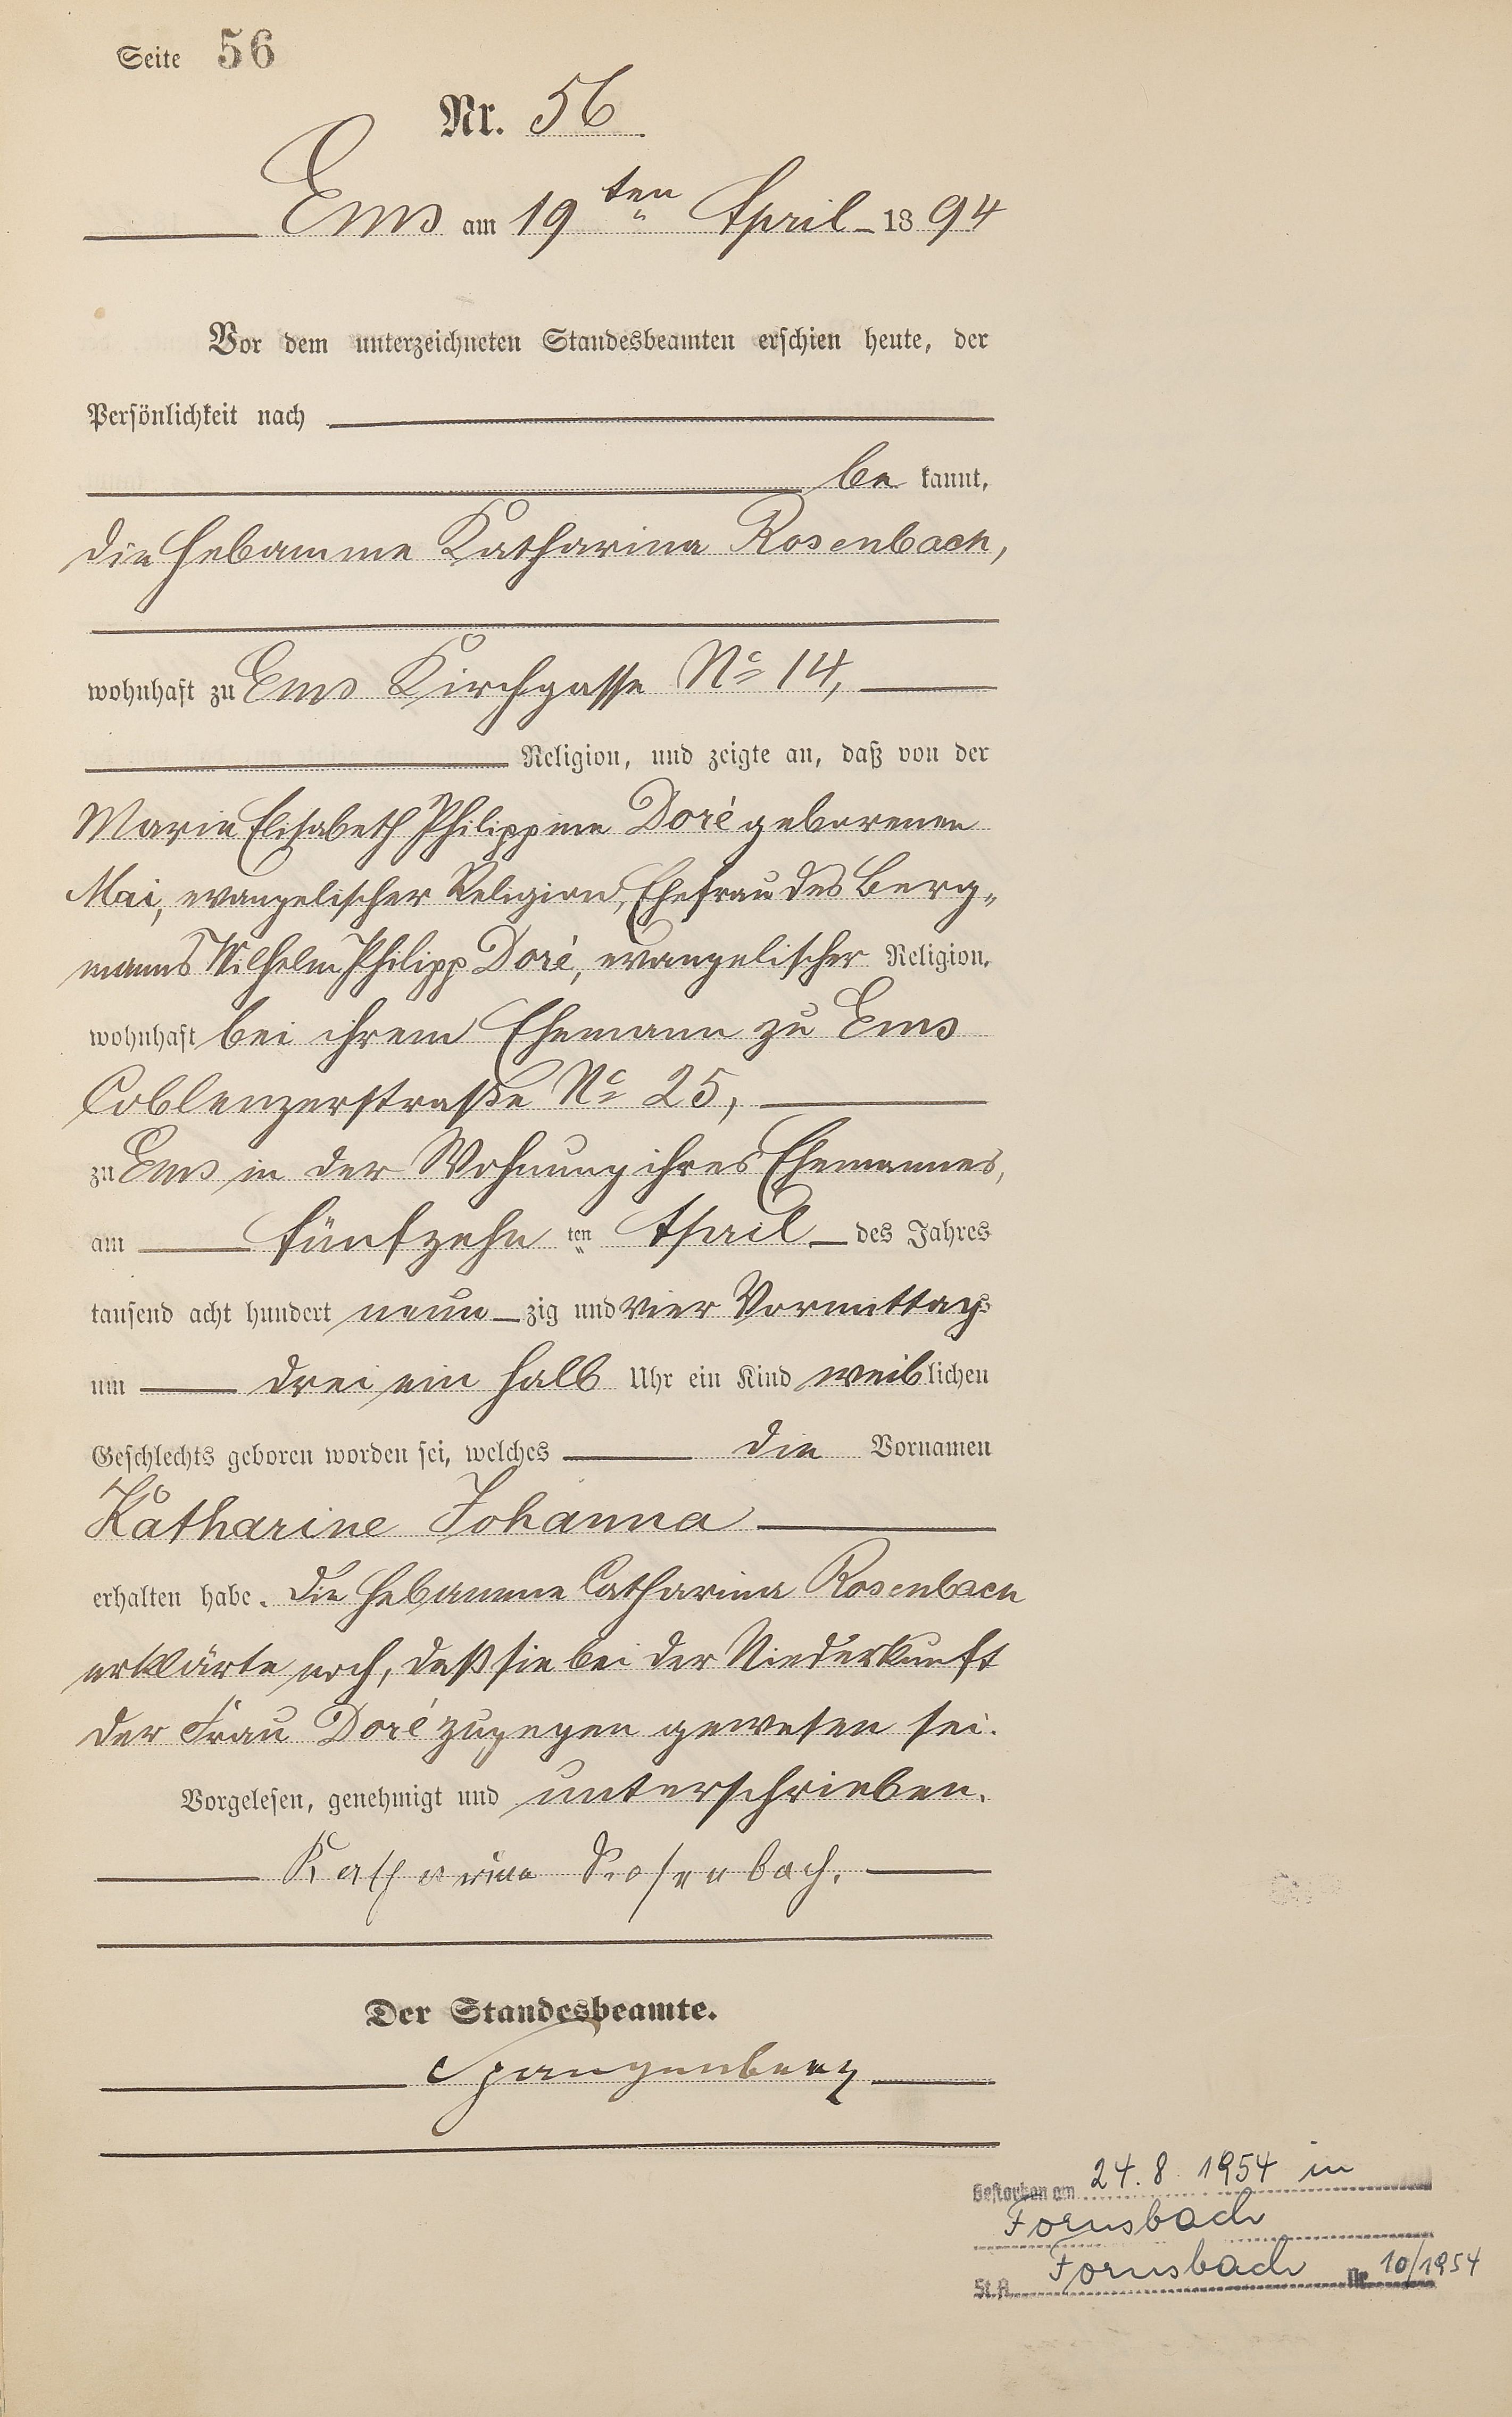 Seite 56
Nr. 56
Ems am 19ten April 1894
Vor dem unterzeichneten Standesbeamten erschien heute, der
Persönlichkeit nach
be kannt,
die Hebamme Katharina Rosenbach,
wohnhaft zu Ems Kirchgasse No 14,
Religion, und zeigte an, daß von der
Marie Elisabeth Philippine Doré geborenen
Mai, evangelischer Religion, Ehefrau des Berg„
manns Wilhelm Philipp Doré, evangelischer Religion,
wohnhaft bei ihrem Ehemann zu Ems
Coblenzerstraße No 25,
zu Ems in der Wohnung ihres Ehemannes,
am fünfzehn ten April des Jahres
tausend acht hundert neun zig und vier Vormittags
um drei ein halb Uhr ein Kind weiblichen
Geschlechts geboren worden sei, welches die Vornamen
Katharine Johanna
erhalten habe. Die Hebamme Catharina Rosenbach
erklärte noch, daß sie bei der Niederkunft
der Frau Doré zugegen gewesen sei.
Vorgelesen, genehmigt und unterschrieben.
Katharina Rosenbach.
Der Standesbeamte.
Spangenberg
Gestorben am 24.8.1954 in
Fornsbach
St.A. Fornsbach Nr. 10/1954